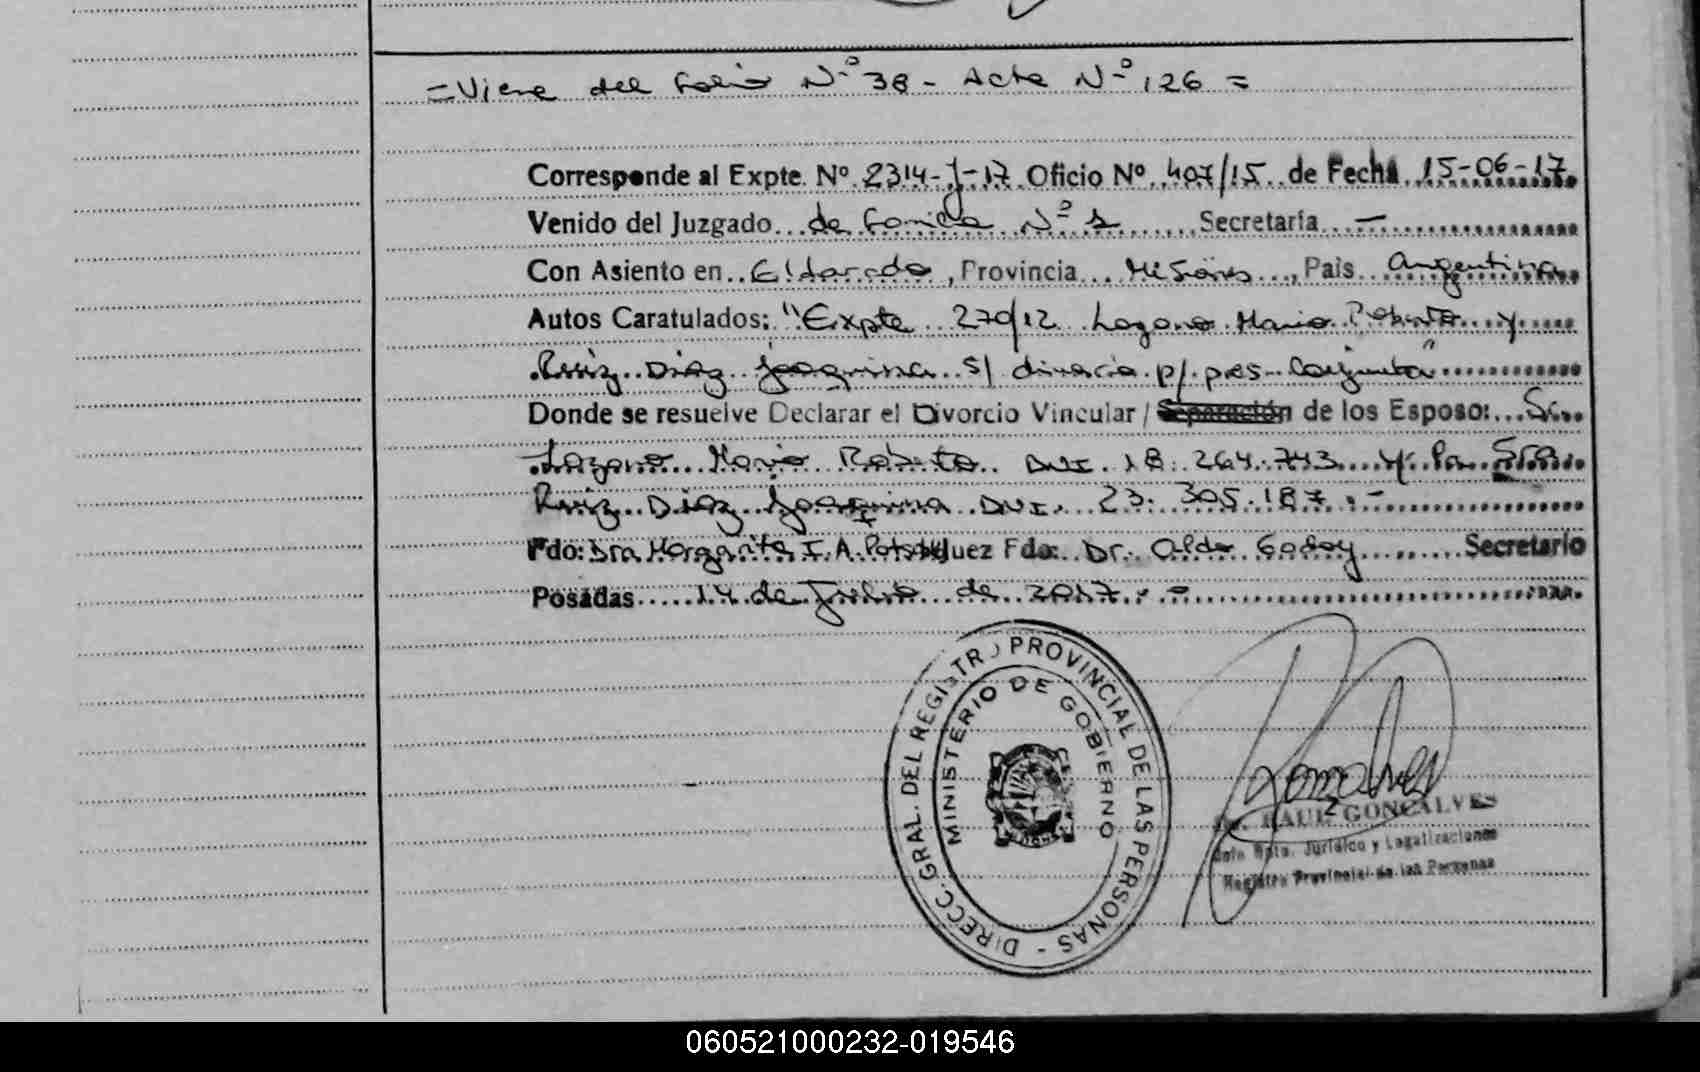 = Viene del Folio Nº 38 - Acta Nº 126 =
Corresponde al Expte. Nº 2314-J-17 Oficio Nº 407/15 de Fecha 15-06-17.
Venido del Juzgado de Familia Nº 1 Secretaría —
Con Asiento en Eldorado, Provincia Misiones, País Argentina
Autos Caratulados: "Expte 270/12 Lozano Mario Roberto y
Ruiz Diaz Joaquina s/ divorcio p/ pres. Conjunta"
Donde se resuelve Declarar el Divorcio Vincular / Separación de los Esposo: Sr.
Lozano Mario Roberto DNI. 18.264.743 y la Sra.
Ruiz Diaz Joaquina DNI. 23.305.187.-
Fdo: Dra Margarita I. A. Juez Fdo: Dr. Aldo Godoy Secretario
Posadas 14 de Julio de 2017.-
DIRECC. GRAL. DEL REGISTRO PROVINCIAL DE LAS PERSONAS -
MINISTERIO DE GOBIERNO
RAUL GONCALVES
Dpto. Jurídico y Legalizaciones
Registro Provincial de las Personas
060521000232-019546